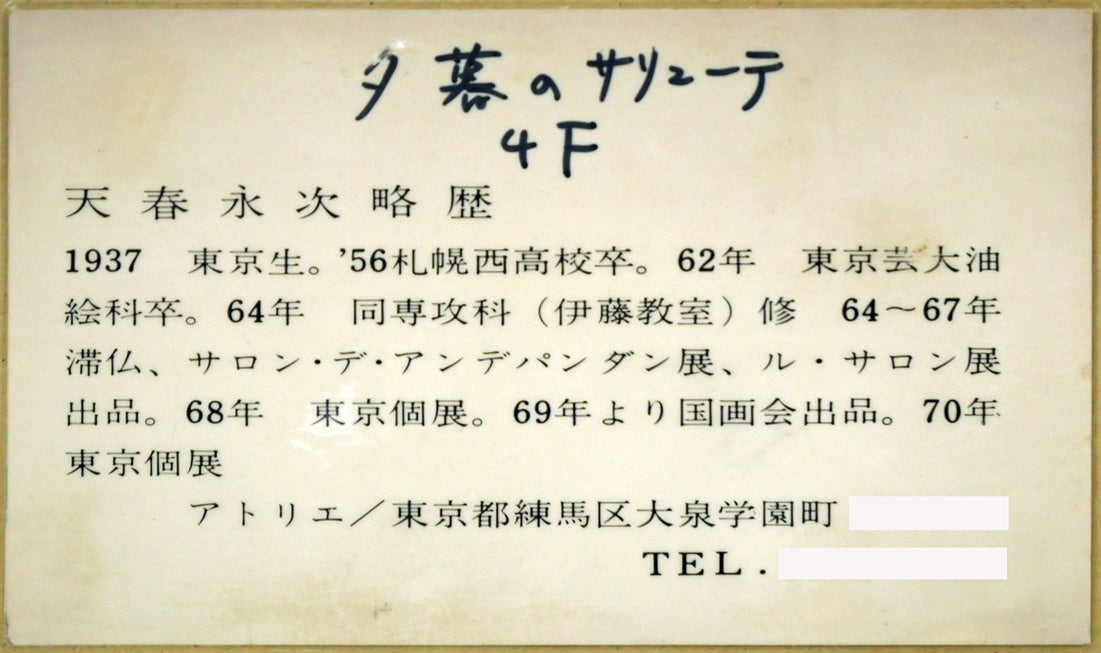 夕暮のサリューテ
4F
天春永次略歴
1937 東京生。'56札幌西高校卒。62年 東京芸大油
絵科卒。64年 同専攻科（伊藤教室）修 64～67年
滞仏、サロン・デ・アンデパンダン展、ル・サロン展
出品。68年 東京個展。69年より国画会出品。70年
東京個展
アトリエ／東京都練馬区大泉学園町
TEL.